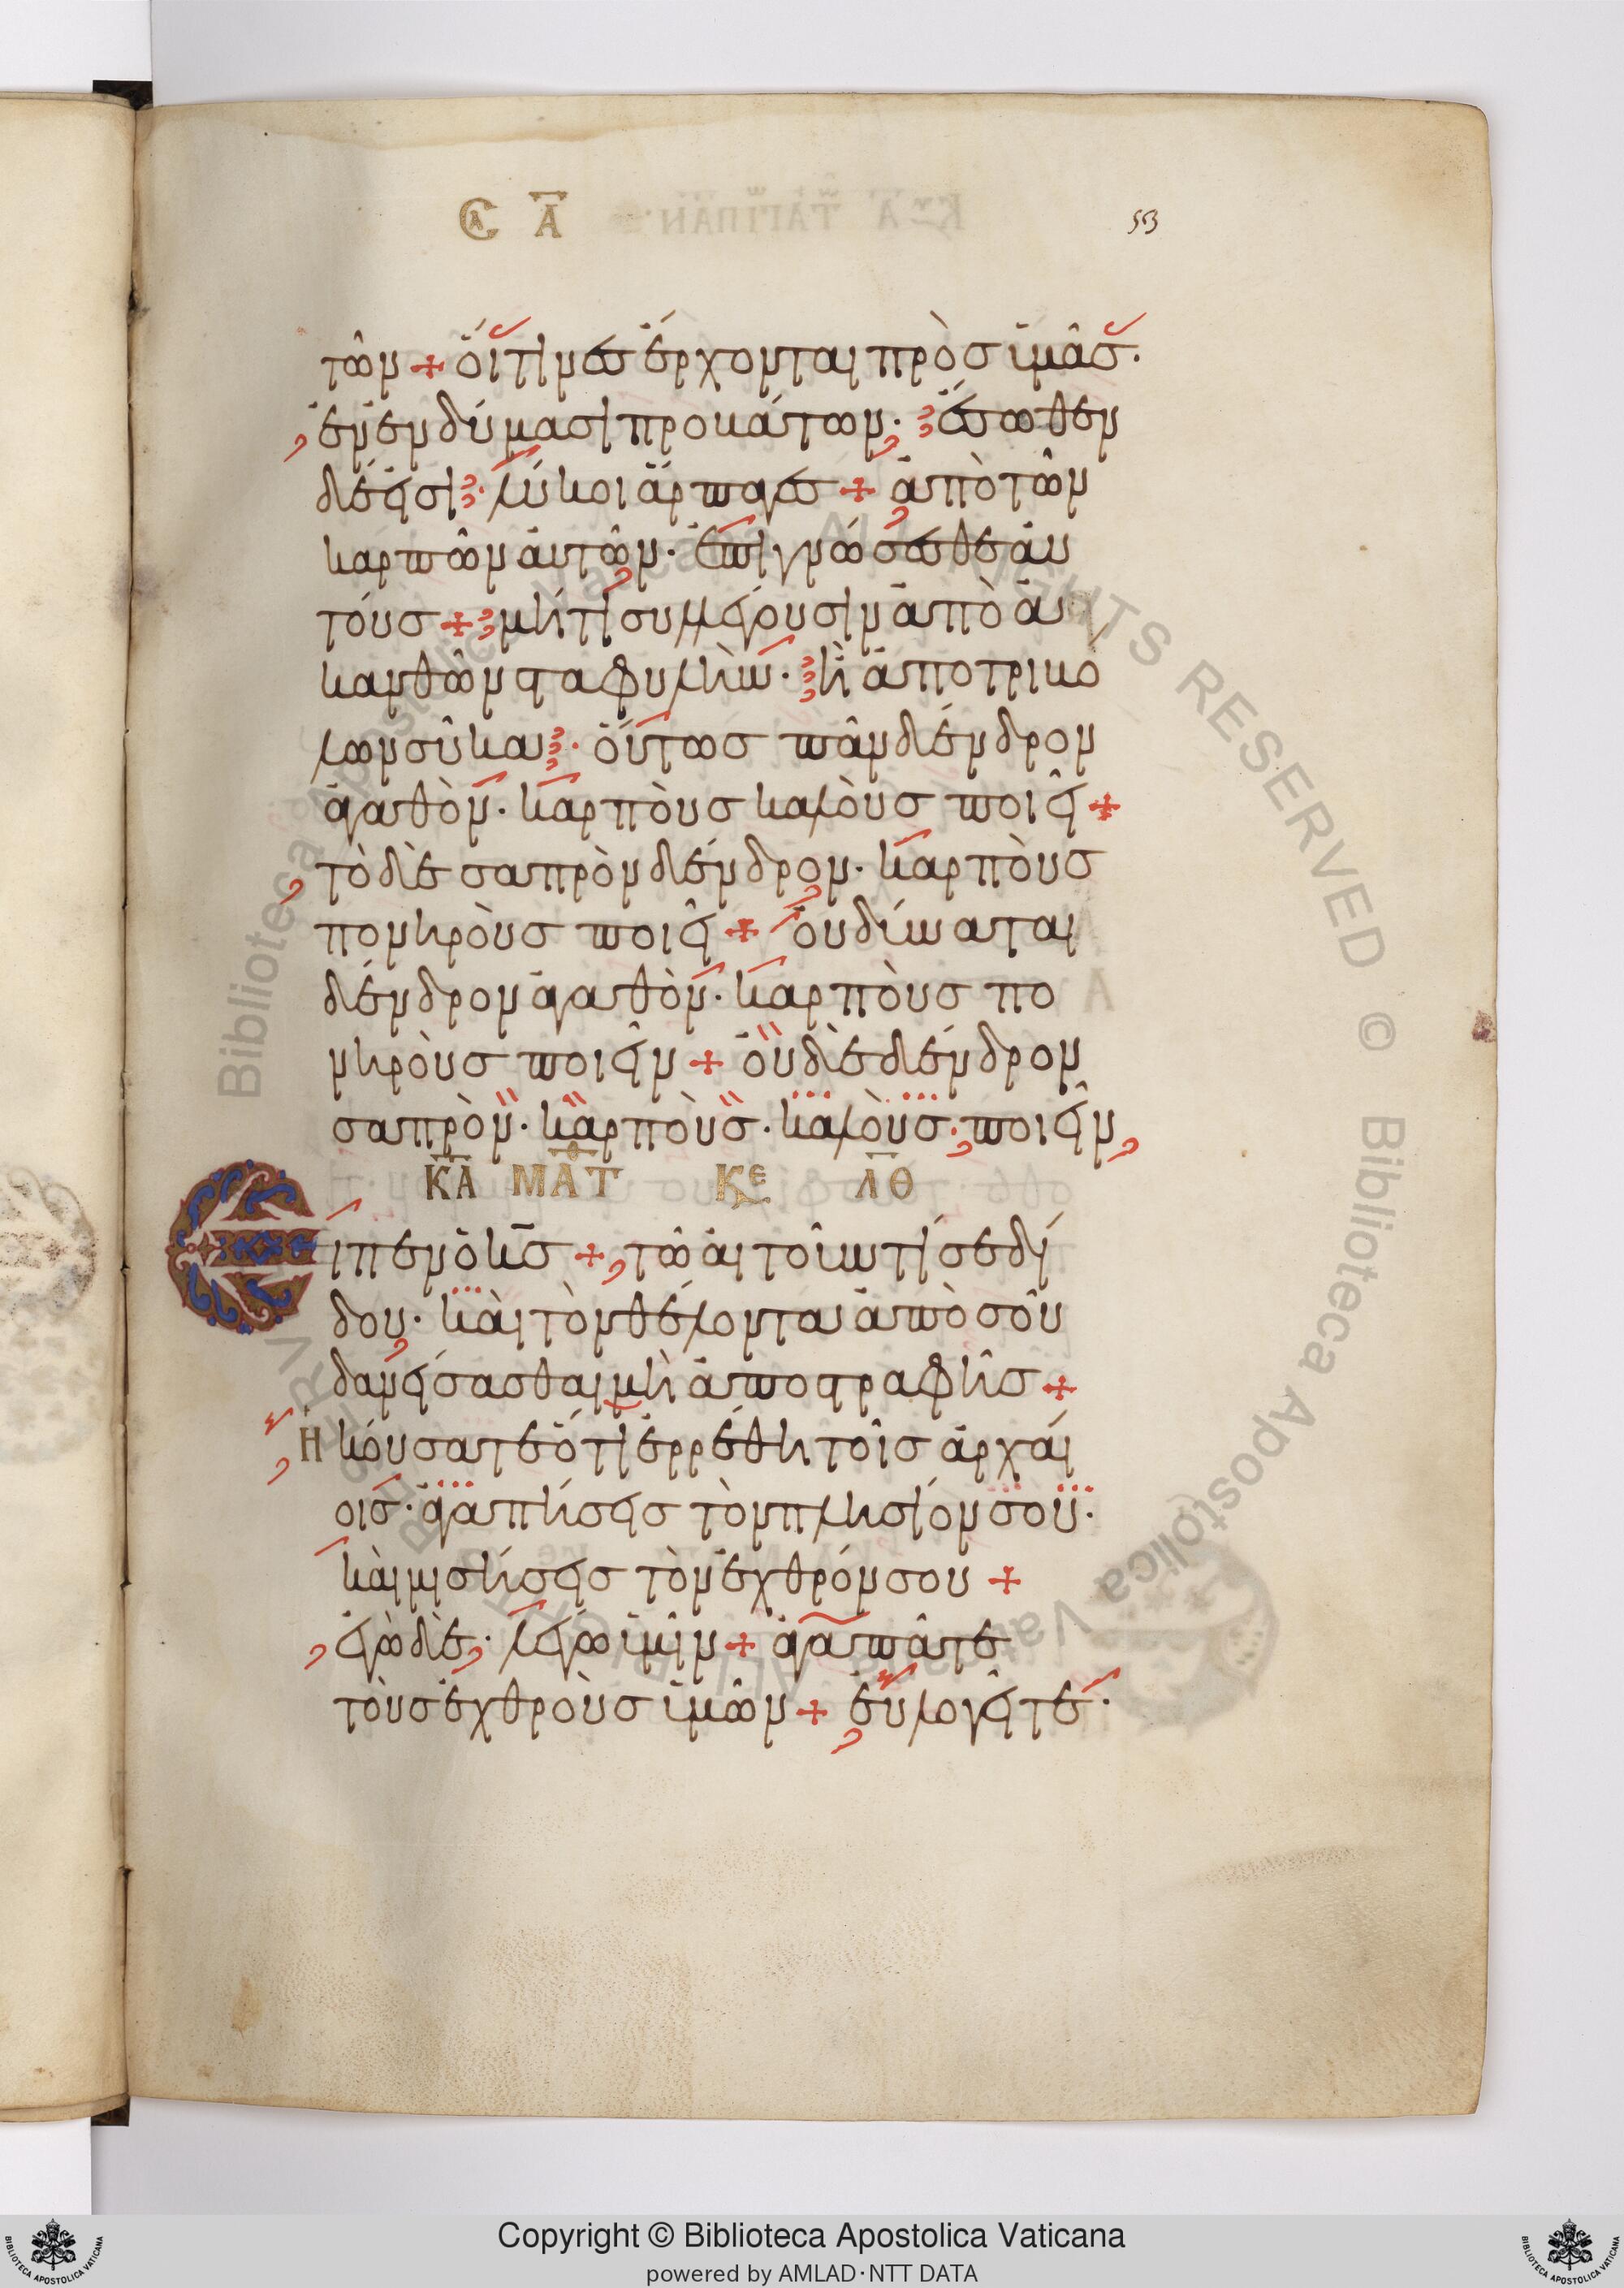 ϹΑ Α 53
τῶν + ὅιτινες ἔρχονται πρὸσ ϊμᾶσ·
ἐν ἐνδύμασι προκάτων· ἔσωθεν
δέεἰσι· λύκοι ἅρπαγεσ + ἀπὸ τῶν
καρπῶν ἀυτῶν· ἐπιγνώσεσθε ἀυ
τόυσ + μήτι συλλέγουσιν ἀπὸ ἀ
κανθῶν σταφυλὴν· ἢ ἀπο τριβό
λων σῦκα· ὅυτωσ πᾶν δένδρον
ἀγαθὸν· καρπὸυσ καλὸυσ ποιεῖ +
τὸ δὲ σαπρὸν δένδρον· καρπὸυσ
πονηρὸυσ ποιεῖ + ὀυ δύναται
δένδρον ἀγαθὸν· καρπὸυσ πο
νηρὸυσ ποιεῖν + ὀυδὲ δένδρον
σαπρὸν· καρπὸυσ· καλὸυσ· ποιεῖν
ΚΑ ΜΑΤΘ ΚΕ ΛΘ
Ειπεν ὁ κσ + τῶ ἀιτοῦντί σε δί
δου· κὰι τὸν θέλοντα ἀπὸ σοῦ
δανείσασθαι μὴ ἀποστραφῆσ +
Ηκόυσατε ὅτι ἐρρέθη τοῖσ ἀρχάι
οισ· ἀγαπήσεισ τὸν πλησίον σου·
κὰι μισήσεισ τὸν ἐχθρόν σου +
ἐγὼ δὲ· λέγω ϊμῖν + ἀγαπᾶτε
τὸυσ ἐχθρὸυσ ϊμῶν + ἐυλογεῖτε·
Copyright © Biblioteca Apostolica Vaticana
powered by AMLAD·NTT DATA